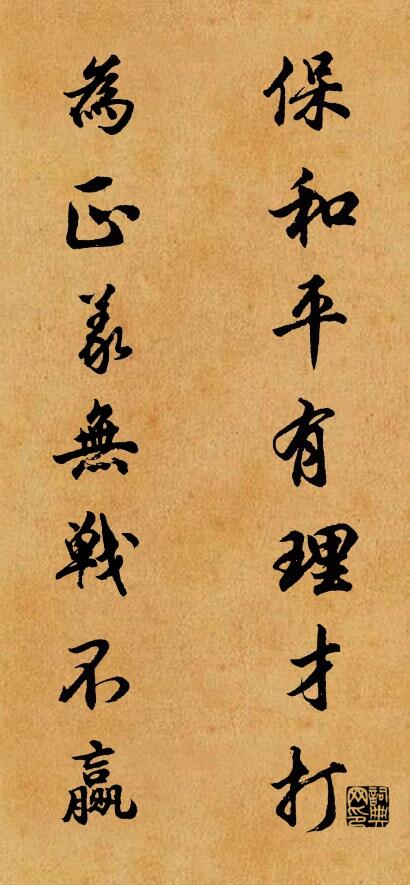 保和平有理才打
為正義無戰不贏
詞典網印